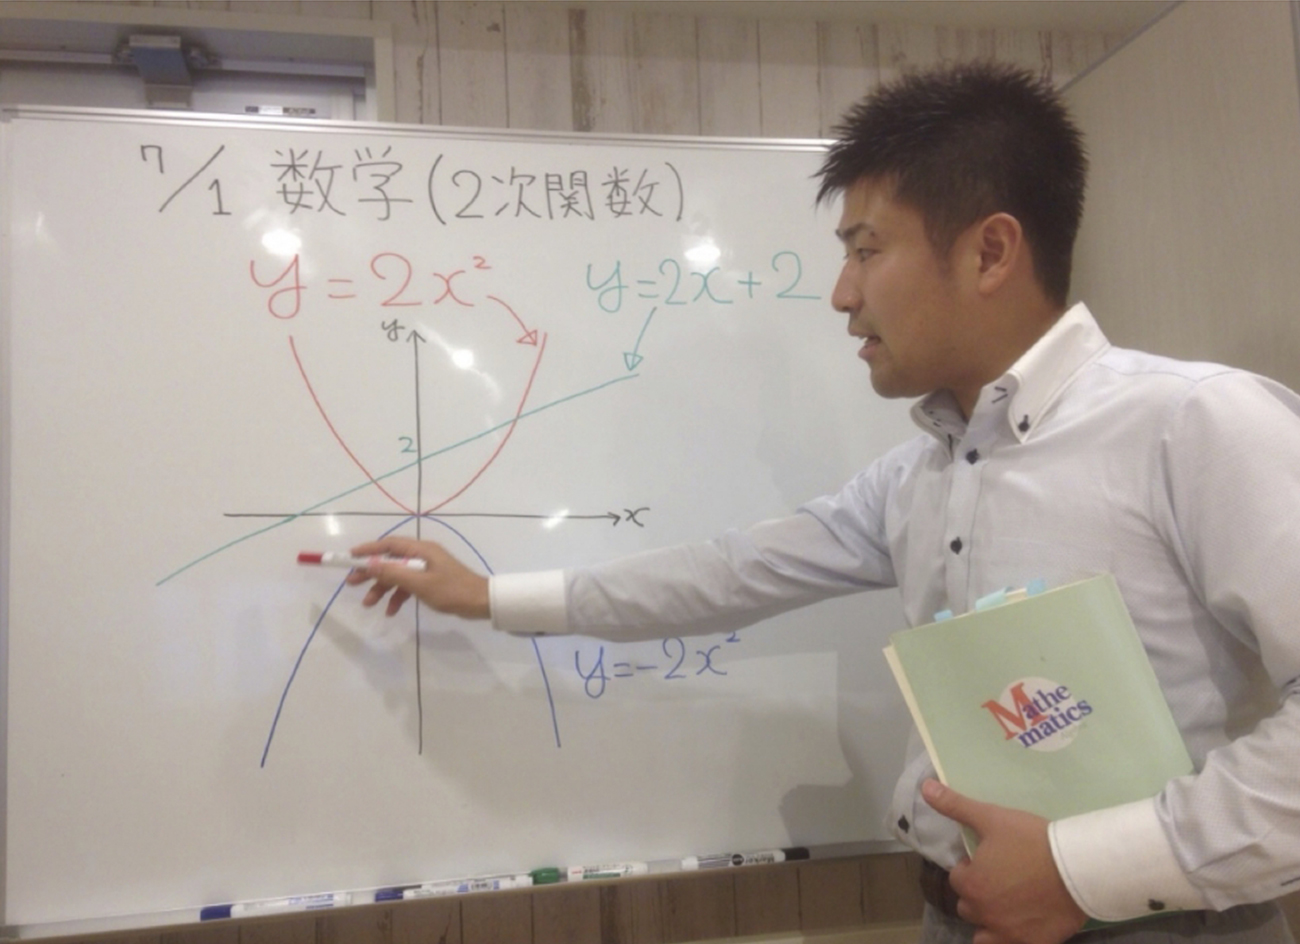 7/1 数学(2次関数)
y=2x²
y=2x+2
y
2
x
y=-2x²
Mathe
matics